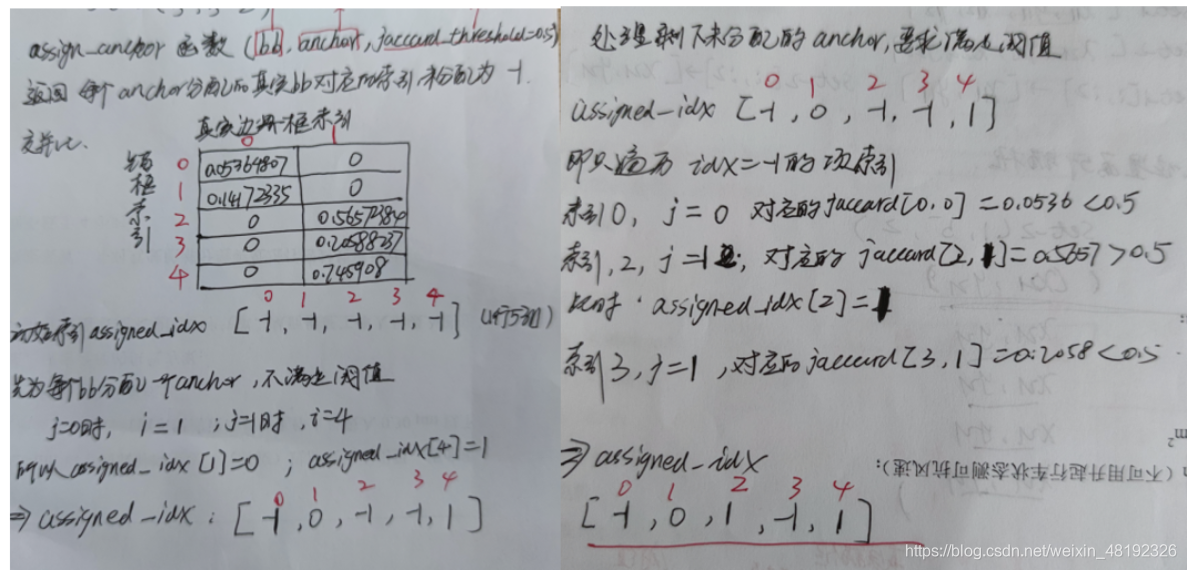 assign_anchor 函数 (bb, anchor, jaccard_threshold=0.5)
返回 每个anchor分配的真实bb对应的索引,未分配为 -1.
交并比.
真实边界框索引
0 1
锚框索引
0 0.05364807 0
1 0.14172335 0
2 0 0.5657238
3 0 0.20588237
4 0 0.745908
0 1 2 3 4
初始索引assigned_idx [-1, -1, -1, -1, -1] (1行5列)
先为每个bb分配一个anchor,不满足阈值
j=0时, i=1 ; j=1时, i=4
所以 assigned_idx[1]=0 ; assigned_idx[4]=1
0 1 2 3 4
⇒ assigned_idx : [-1, 0, -1, -1, 1]
处理剩下未分配的anchor,要求满足阈值
0 1 2 3 4
assigned_idx [-1, 0, -1, -1, 1]
即只遍历 idx=-1的项索引
索引0, j=0 对应的jaccard[0,0]=0.0536<0.5
索引,2, j=1 ; 对应的 jaccard[2,1]=0.5657>0.5
此时 assigned_idx[2]=1
索引3, j=1 ,对应的jaccard[3,1]=0.2058<0.5
⇒ assigned_idx
0 1 2 3 4
[-1, 0, 1, -1, 1]
m²
(不可用升起行车状态测可抗风速):
https://blog.csdn.net/weixin_48192326